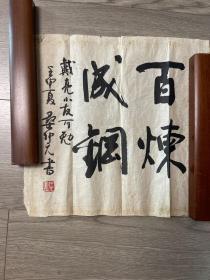 百煉
成鋼
戴亮小友可勉
壬申夏 仲元書